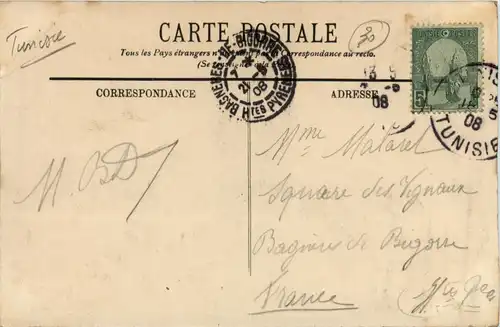 Tunisie
CARTE POSTALE
20
Tous les Pays étrangers n' Correspondance au recto.
(Se
BAGNERES-DE-BIGORRE
21 - 5
08
Htes PYRENEES
13 5
08
TUNISIE
5
08
TUNISIE
CORRESPONDANCE
ADRESSE
M. BD
Mme Mataret
Square des Vignaux
Bagnères de Bigorre
France (Htes Pees